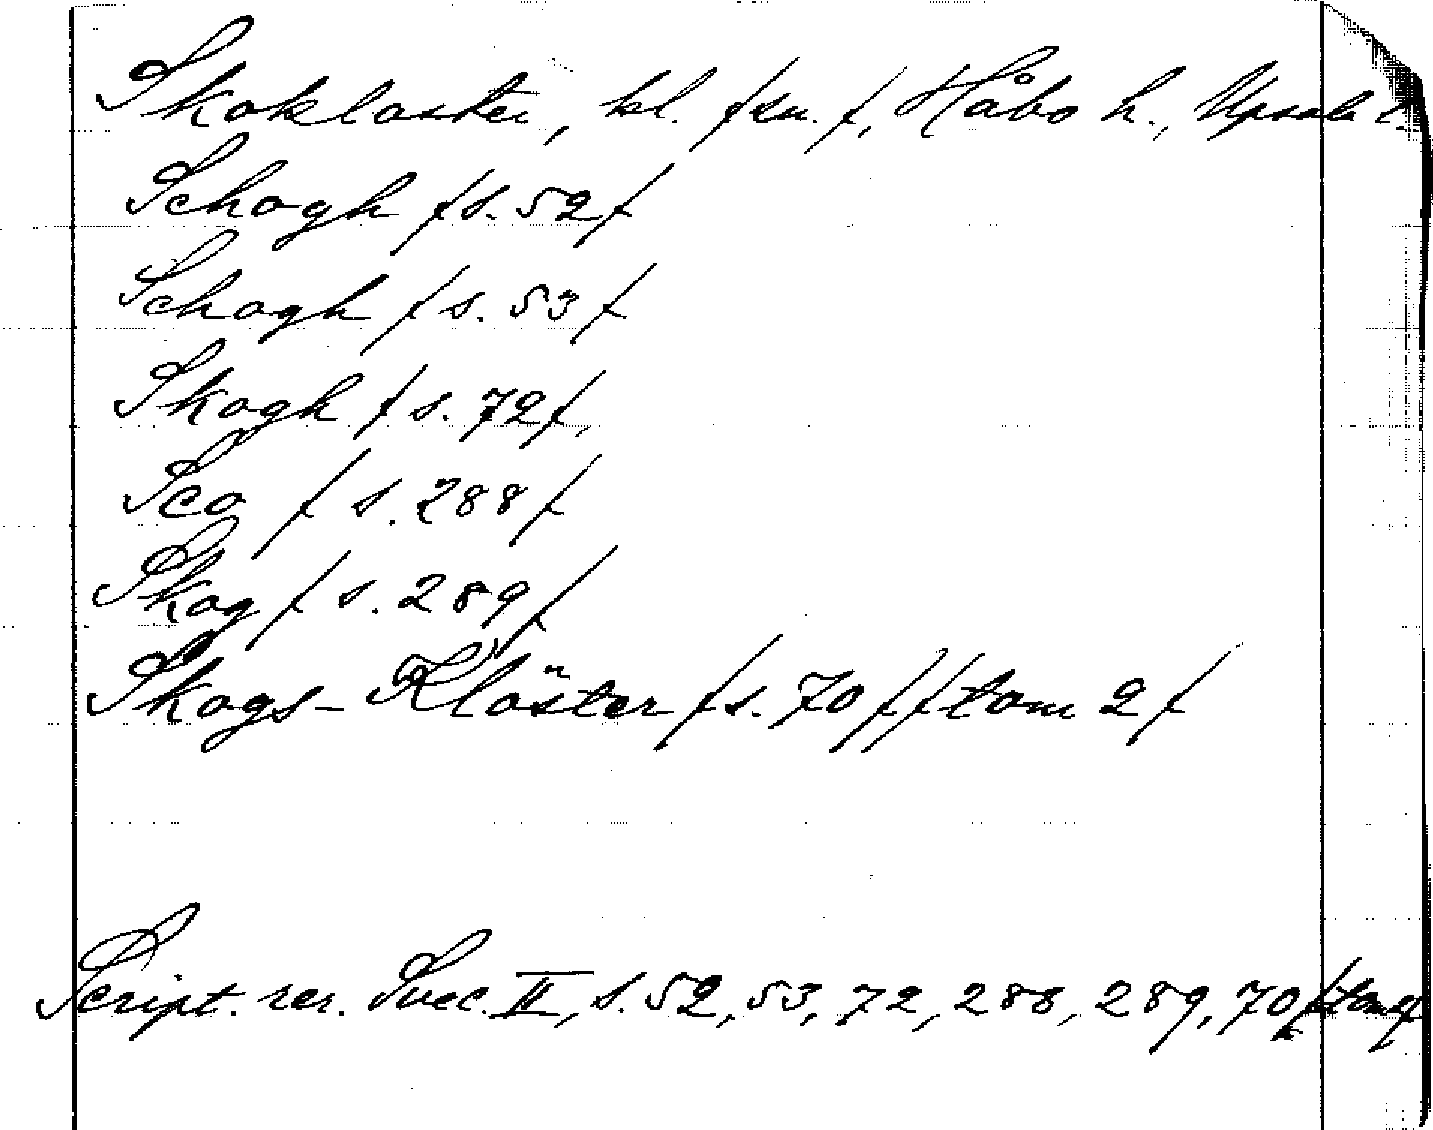 Skokloster, kl. /sn./, Håbo h., Upsala l.
Schogh /s. 52/
Schogh /s. 53/
Skogh /s. 72/,
Sco /s. 288/
Skog /s. 289/
Skogs-Klöster /s. 70/ /tom 2/
Script. rer. Svec. II, s. 52, 53, 72, 288, 289, 70 /tom 2/